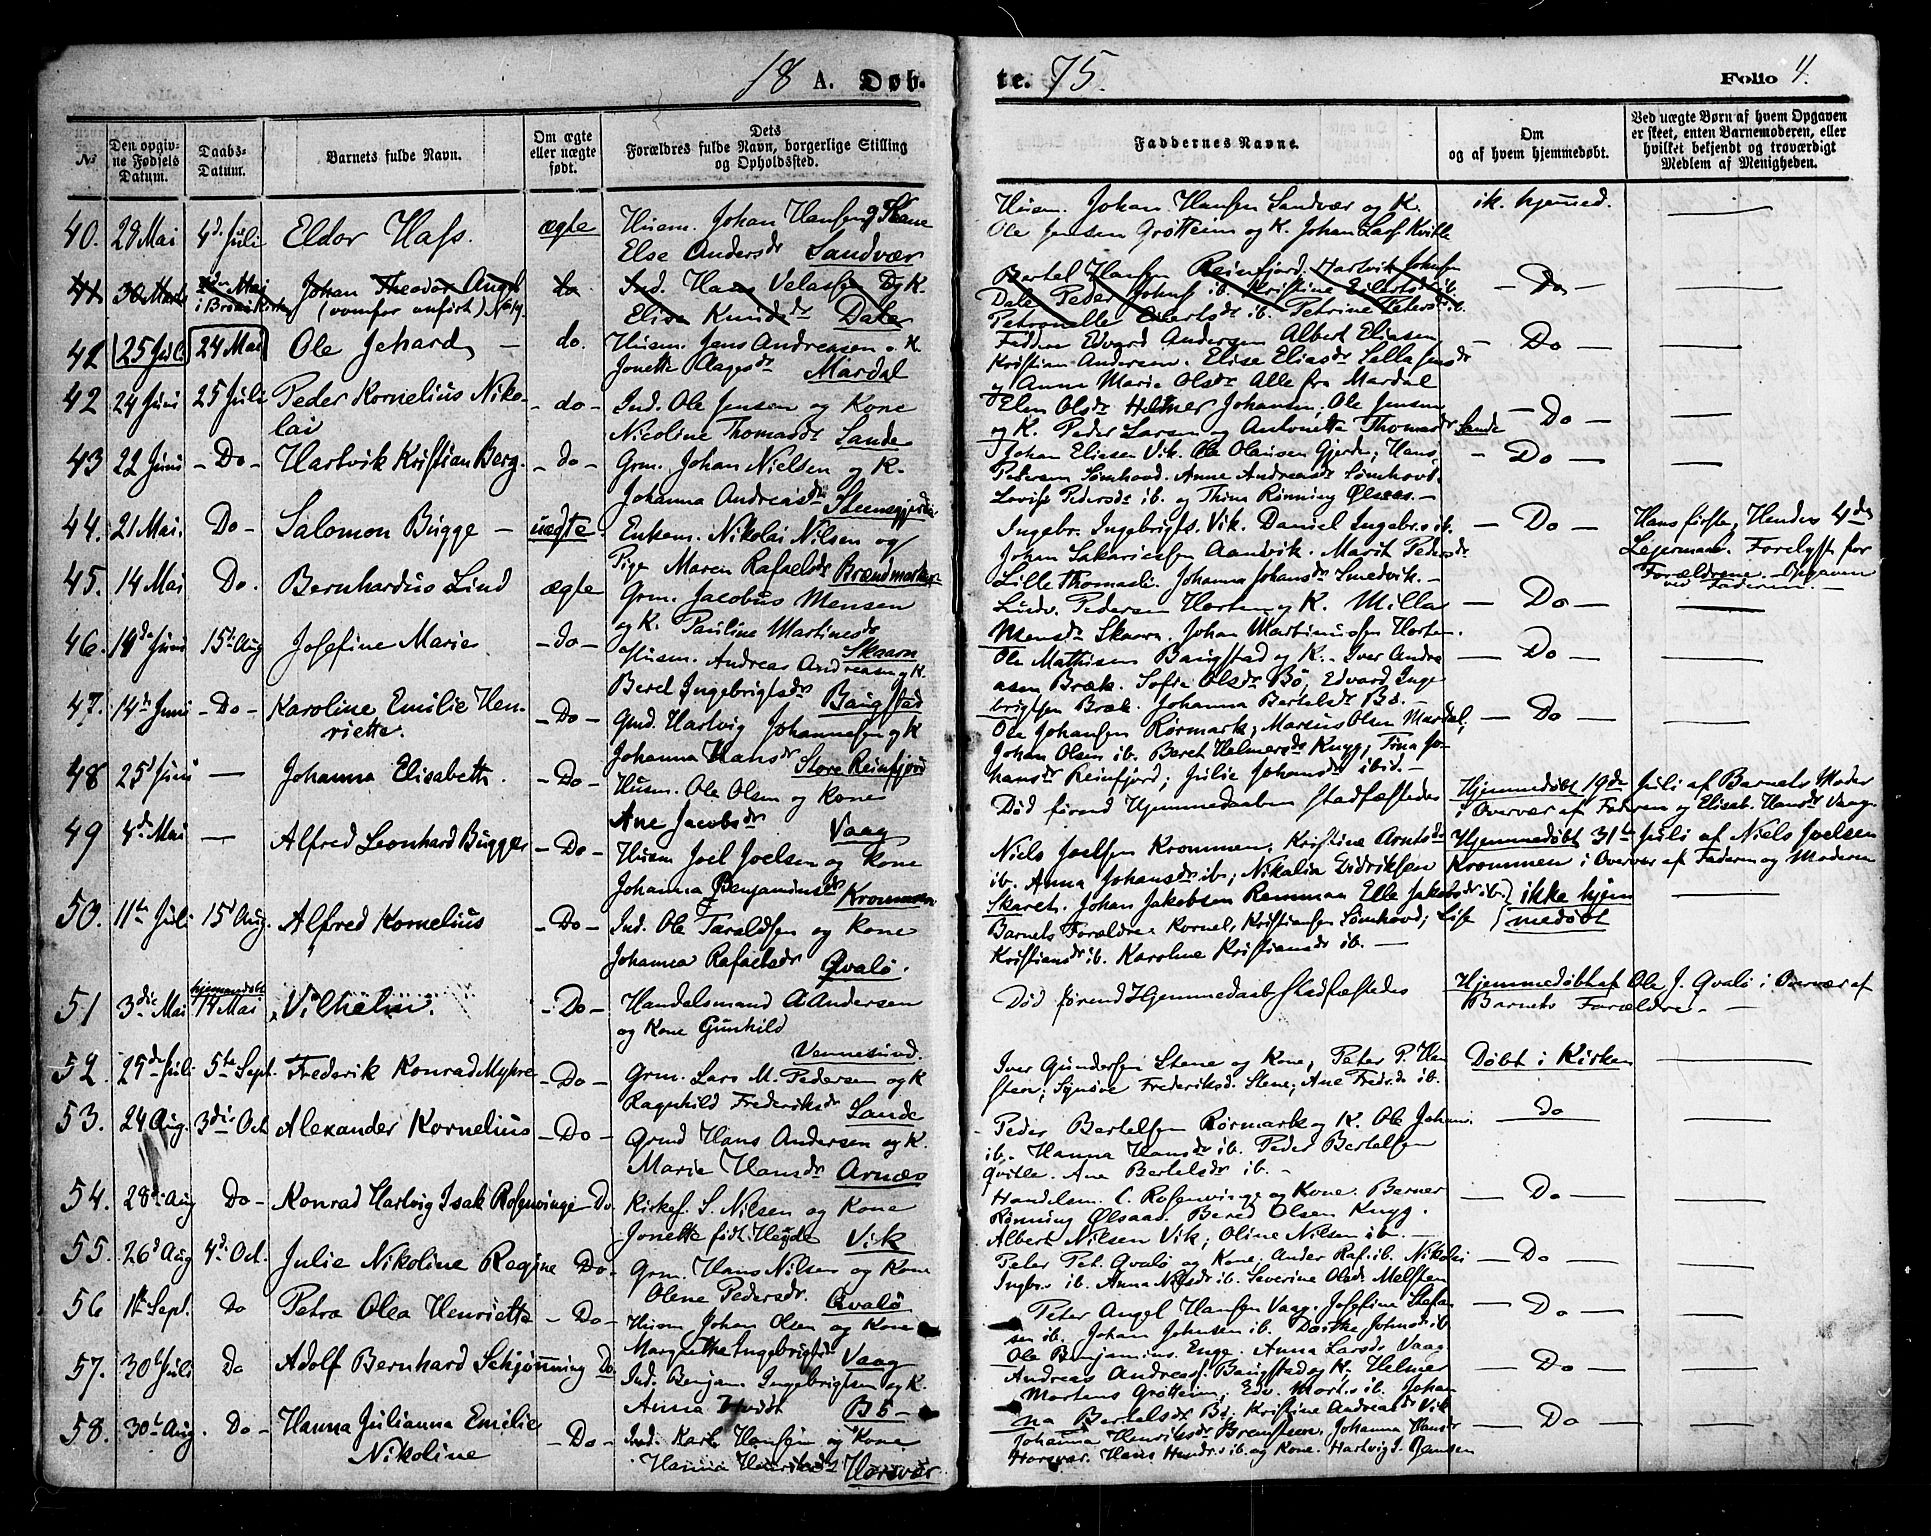 18 A. Døb-
te. 75.
Folio 4.
No
Den opgiv-
ne Fødsels
Datum.
Daabs-
Datum.
Barnets fulde Navn.
Om ægte
eller uægte
født.
Dets
Forældres fulde Navn, borgerlige Stilling
og Opholdssted.
Faddernes Navne.
Om
og af hvem hjemmedøbt.
Ved uægte Børn af hvem Opgaven
er skeet, enten Barnemoderen, eller
hvilket bekjendt og troværdigt
Medlem af Menigheden.
40. 28 Mai 4d. Juli Eldor Hass. ægte
Husm. Johan Hansen
Else Andersdr Sandvær
Husm. Johan Hansen Sandvær og K.
Ole Jensen Grøtteim og K. Johan Kvitle
ik. hjemmed.
41 30 Marts Mai Johan Theodor Angel do
i Brønø Kirke (ovenfor anført) No 19.
Ind. Hans Velassen Dg K
Elise Knudsdr Dale
Bertel Hansen Reinfjord. Hartvik Johnsen
Dale Peder Johns ib. Kristine Eilertsdr ib.
Petronelle Eilertsdr ib. Petrine Petersdr ib.
— Do —
42 25 Juli 24 Mai Ole Jehard — do.
Husm. Jens Andreasen o. K.
Jonetta Olagesdr Mardal
Faddere Edvard Andersen Albert Eliasen
Kristian Andersen. Elise Eliasdr Lella Jensdr
og Anne Marie Olsdr Alle fra Mardal
— Do —
42 24 Juni 25 Juli Peder Kornelius Niko-
lai
- do -
Ind. Ole Jensen og Kone
Nicoline Thomasdr Sande
Elen Olsdr Helmer Johansen, Ole Jensen
og K. Peder Larsen og Antonetta Thomasdr Sande
— Do —
43 22 Juni - Do - Hartvik Kristian Berg. - do -
Grm. Johan Nielsen og K.
Johanna Andreasdr Steensgjerdet
Johan Eliesen Vik. Ole Olaisen Gjerde; Hans
Petersen Sømhovd. Anne Andreasdr Sømhovd.
Lovise Pedersdr ib. og Thina Rønning Ølsaas. —
- Do —
44. 21 Mai. Do - Salomon Bugge — uægte.
Enkem. Nikolai Nilsen og
Pige Maren Rafaelsdr Brændmarken
Ingebr. Ingebrigts. Vik. Daniel Ingebr.s ib.
Johan Sakariessen Aandvik. Marit Pedersdr
Lille Thomasli. Johanna Johansdr Smedvik. —
— Do —
Hans første, Hendes 4de
Lejermaal. Forelyst for
Forældrene. Opgaven
ved Faderen. —
45. 14 Mai Do. Bernhardus Lind ægte
Grm. Jacobus Mensen
og K. Pauline Martinesdr
Skaarn
Lindv. Pedersen Horten og K. Milla
Mensdr Skaarn. Johan Martinussen Horten.
— Do —
46. 14de Juni 15d. Aug Josefine Marie - do -
Husm. Andreas Andreasen og K.
Beret Ingebrigtsdr Bangstad
Ole Mathisen Bangstad og K. - Iver Andre
asen Bræk. Sofie Olsdr Bö, Edvard Inge
brigtsen Bræk. Johanna Bertelsdr Bö. —
— Do —
47. 14de Juni - Do - Karoline Emilie Hen-
riette.
- Do -
Gmd. Hartvig Johannesen og K
Johanna Hansdr Store Reinfjord
Ole Johansen Rörmark, Marius Olsen Mardal,
Johan Olsen ib. Beret Helmersdr Knyg; Trina Jo-
hansdr Reinfjord; Julie Johansdr ibid. —
— Do —
48 25d Juni — Johanna Elisabeth. - Do -
Husm. Ole Olsen og Kone
Ane Jacobsdr Vaag
Død førend Hjemmedaaben stadfæstedes
Hjemmedøbt 19de Juli af Barnets Moder
i Overvær af Faderen og Elisab. Hansdr Vaag.
49 4de Mai — Alfred Leonhard Bugge - Do -
Husm Joel Joelsen og Kone
Johanna Benjaminsdr Krommen
Niels Joelsen Krommen, Kristine Arntsdr
ib. Anna Johansdr ib; Nikolai Didriksen
Skaret. Johan Jakobsen Remman Elle Jakobsdr ib.
Hjemmedøbt 31te Juli af Niels Joelsen
Krommen i Overvær af Faderen og Moderen
50. 11te Juli 15d Aug. Alfred Kornelius - Do -
Ind. Ole Taraldsen og Kone
Johanna Rafaelsdr Qvalö.
Barnets Forældre Kornel. Kristiansen Sømhovd; Lise
Kristiansdr ib. Karoline Kristiansdr ib. —
ikke hjem
medøbt
51 3die Mai hjemmedøbt 14 Mai Vilhelm. - Do -
Handelsmand A Andersen
og Kone Gunhild
Vennesund.
Død førend Hjemmedaab Stadfæstedes
Hjemmedøbt af Ole J. Qvalö i Overvær af
Barnets Forældre. —
52. 25de Juli 5te Sept. Frederik Konrad Myhre - Do -
Grm. Lars M. Pedersen og K
Ragnhild Frederiksdr Sande
Iver Gundersen Stene og Kone, Peter P. Han
sten; Synöve Frederiksd. Stene; Ane Fredr.d. ib.
Døbt i Kirken
53. 24 Aug. 3die Oct Alexander Kornelius - Do -
Grmd Hans Andersen og K.
Marie Hansdr Arnæs
Peder Bertelsen Rörmark og K. Ole Johans.
ib. Hanna Hansdr ib. Peder Bertelsen
Qville. Ane Bertelsdr ib. -
Do
54. 28de Aug Do - Konrad Hartvig Isak Rosenvinge Do
Kirkes. S. Nilsen og Kone
Jonette født Heyde Vik
Handelsm. C. Rosenvinge og Kone. Berner
Rønning Ølsaas. Bered Olsen Knyg.
Albert Nilsen Vik; Oline Nilsen ib. —
— Do —
55. 26d Aug 4d. Oct. Julie Nikoline Regine Do
Grm. Hans Nilsen og Kone
Olene Pedersdr. Qvalö
Peter Pet. Qvalö og Kone, Ander Raf. ib. Nikolai
Ingbr.s ib. Anna Nilsdr ib. Severine Olsdr Melsten
— Do —
56 1te Sept. Do Petra Olea Henriette - Do -
Husm Johan Olsen og Kone
Margrethe Ingebrigtsdr Vaag
Peter Angel Hansen Vaag. Josefine Stefan
sen ib. Johan Johnsen ib. Dorthe Johnsdr ib
Ole Benjamins. Enge. Anna Larsdr Vaag
— Do —
57. 30te Juli Do Adolf Bernhard Schjønning Do
Ind. Benjam. Ingebrigtsen og K.
Anna Hvidt Bö -
Andreas Andreass. Bangstad og K, Helmer
Mortens Grøtteim; Edv. Mort.s ib. Johan
na Bertelsdr Bö; Kristine Andreasdr Vik
— Do —
58. 30te Aug. - Do - Hanna Julianna Emilie
Nikoline
- Do -
Ind. Karl Hansen og Kone
Hanna Henriksdr Horsvær
Johanna Henriksdr Bremsteen. Johanna Hansdr
Horsvær. Hans Hendr.s ib. og Kone. Hartvig J. Jansen
— Do —